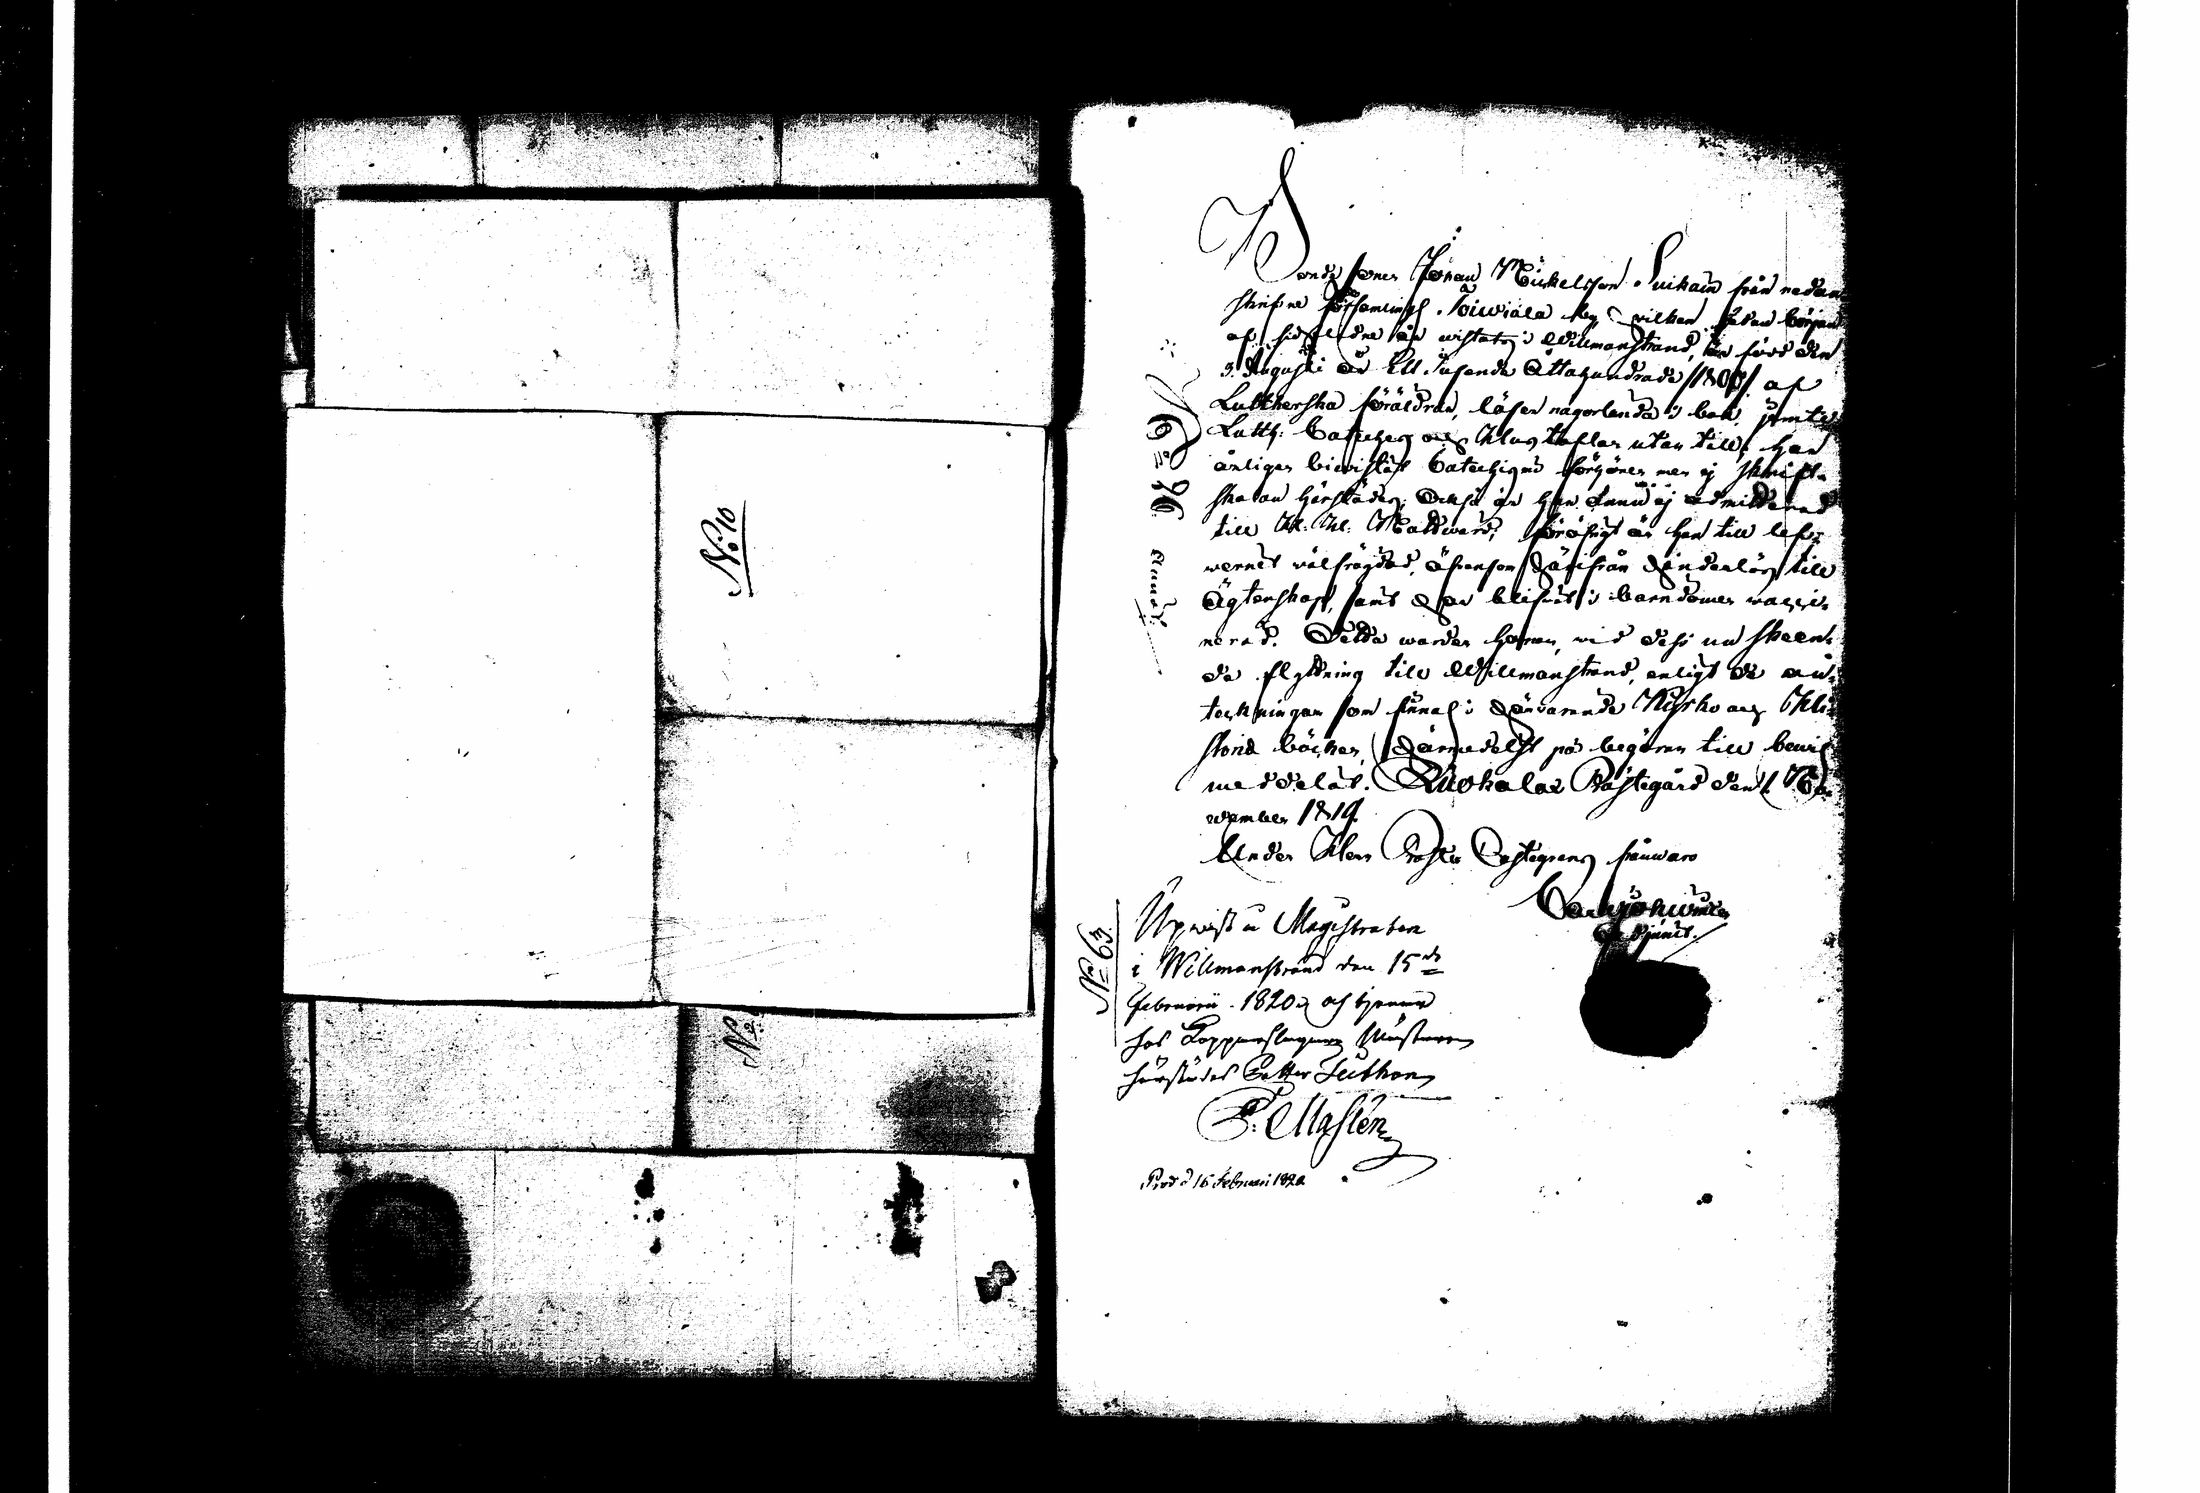 No 10
No
Bonde sonen Johan Michelsson Suikain från nedan
skrefne församlingh Toiwiala by, hvilken sedan början
af sidstledne år wistats i Willmanstrand, är född den
3. Augusti år Ett Tusende Åttahundrade /180 / af
Lutherska föräldrar, läser någorlunda i bok, jemte
Luth: Cateches och Hus taflan utan till; han
årligen biewistat Catechismi förhören men ej Skrift-
skolan härstädes, Också är han ännu ej admitterad
till H. H. Nattward; Öfrigt är han till lef-
wernet wälfrägdad, äfwensom härifrån hinderlös till
Ägtenskap, samt har blifwit i barndomen vacci-
nerad. Detta warder honom, wid dess nu skeen-
de flyttning till Willmanstrand, enligt de an-
teckningar som finnas i härwarande Kyrko och Chri-
stend böcker, härmedelst på begäran till bewis
meddelat. Ruokolax Prästegård den 1 No-
wember 1819.
Under Herr frånwaro
Adjunct.
No 63
Upwist i Magistraten
i Willmanstrand den 15de
Februarii 1820, och tjenar
hos Kopparslagare Mästaren
härstädes Petter
Prod d 16 Februari 1820